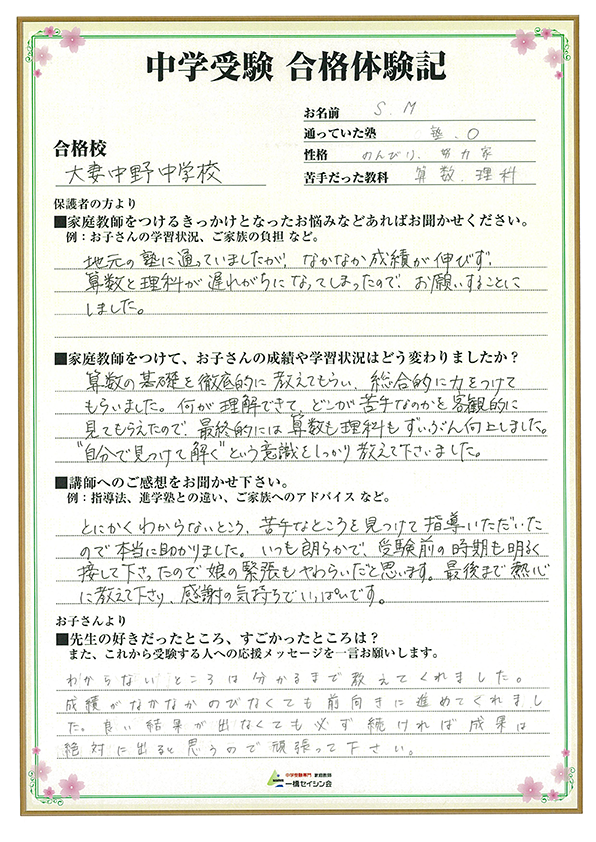 中学受験 合格体験記
お名前 S.M
通っていた塾 塾.O
合格校
大妻中野中学校
性格 のんびり、努力家
苦手だった教科 算数、理科
保護者の方より
■家庭教師をつけるきっかけとなったお悩みなどあればお聞かせください。
例：お子さんの学習状況、ご家族の負担 など。
地元の塾に通っていましたが、なかなか成績が伸びず、
算数と理科が遅れがちになってしまったので、お願いすることに
しました。
■家庭教師をつけて、お子さんの成績や学習状況はどう変わりましたか？
算数の基礎を徹底的に教えてもらい、総合的に力をつけて
もらいました。何が理解できてて、どこが苦手なのかを客観的に
見てもらえたので、最終的には算数も理科もずいぶん向上しました。
"自分で見つけて解く"という意識をしっかり教えて下さいました。
■講師へのご感想をお聞かせ下さい。
例：指導法、進学塾との違い、ご家族へのアドバイス など。
とにかくわからないところ、苦手なところを見つけて指導いただいた
ので本当に助かりました。いつも朗らかで、受験前の時期も明るく
接して下さったので娘の緊張もやわらいだと思います。最後まで熱心
に教えて下さり、感謝の気持ちでいっぱいです。
お子さんより
■先生の好きだったところ、すごかったところは？
また、これから受験する人への応援メッセージを一言お願いします。
わからないところは分かるまで教えてくれました。
成績がなかなかのびなくても前向きに進めてくれまし
た。良い結果が出なくても必ず続ければ成果は
絶対に出ると思うので頑張って下さい。
中学受験専門 家庭教師
一橋セイシン会